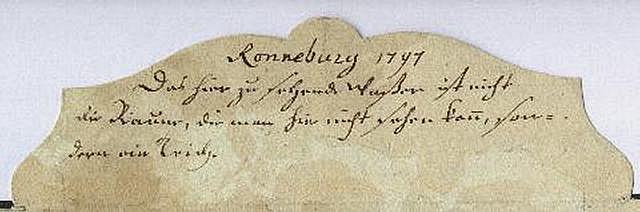 Ronneburg 1797
Das hier zu sehende Waßer ist nicht
die Raune, die man hie nicht sehen kann, son=
dern ein Teich.